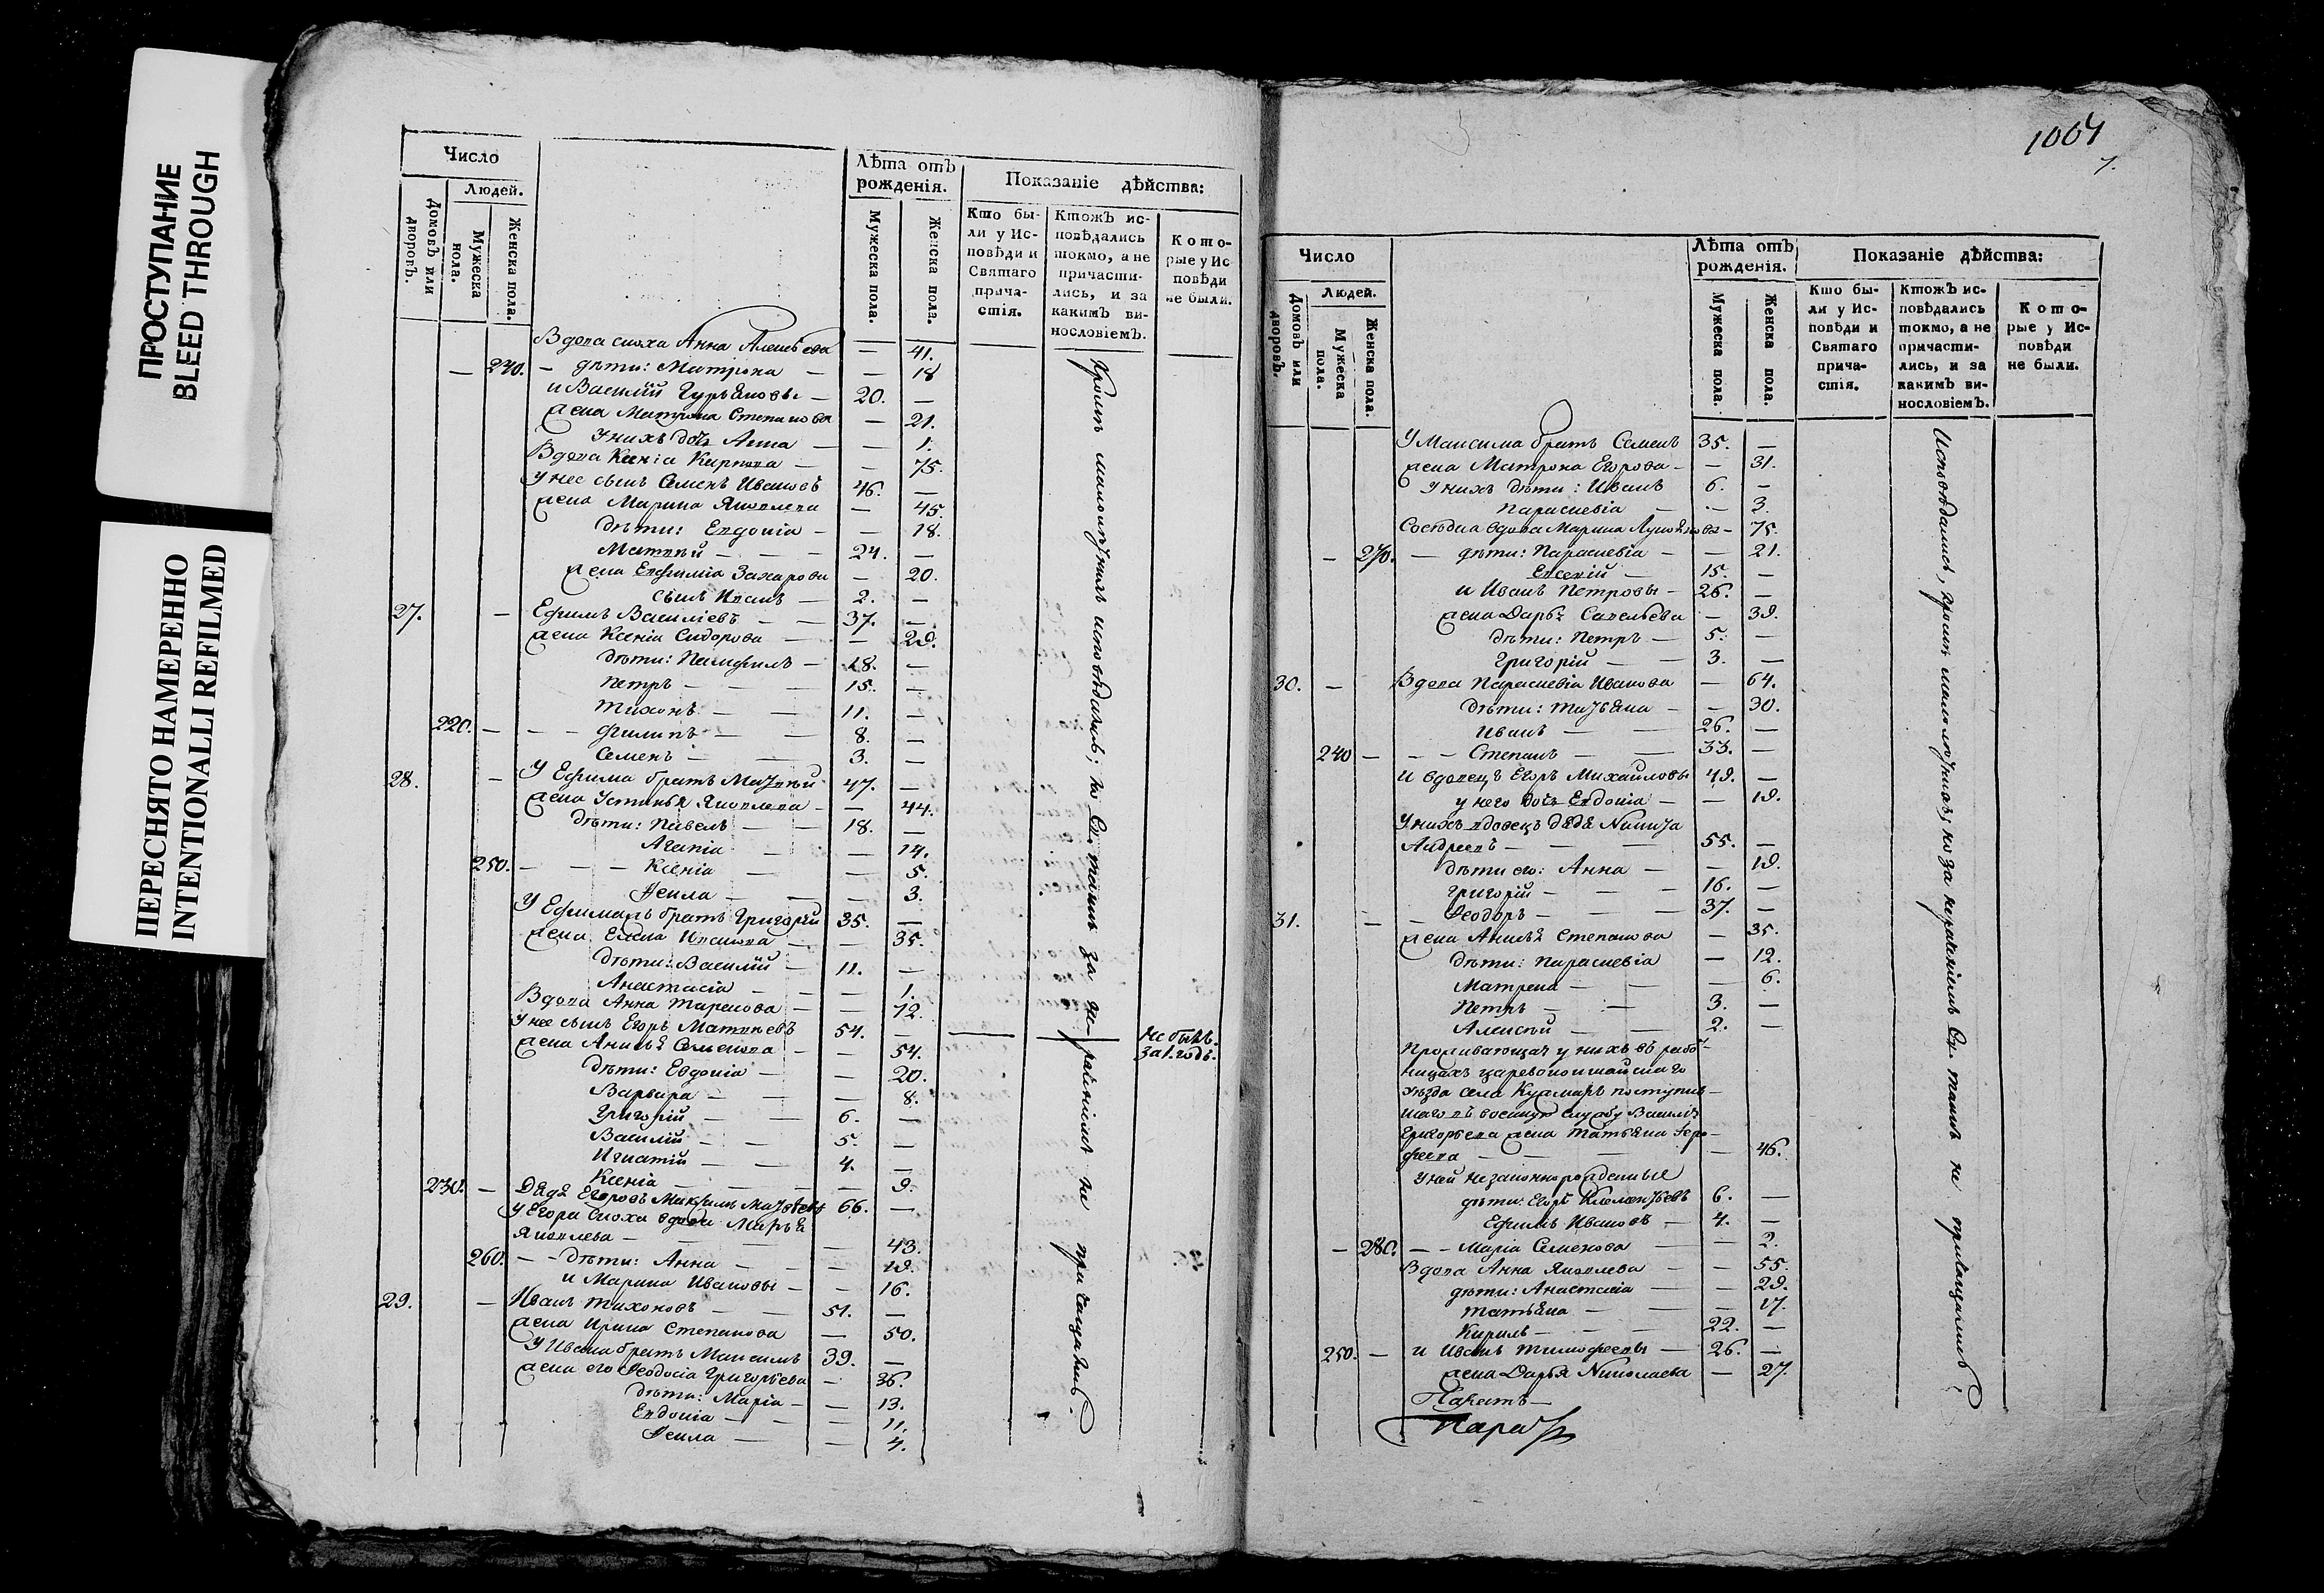 ПРОСТУПАНИЕ
BLEED THROUGH
ПЕРЕСНЯТО НАМЕРЕННО
INTENTIONALLI REFILMED
Число
Людей.
Домовъ или дворовъ.
Мужеска пола.
Женска пола.
Лѣта отъ рожденія.
Мужеска пола.
Женска пола.
Показаніе дѣйства:
Кто бы-
ли у Ис-
повѣди и
Святаго
прича-
стія.
Ктожъ ис-
повѣдались
токмо, а не
причасти-
лись, и за
какимъ ви-
нословіемъ.
Кото-
рые у Ис
повѣди
не были.
Вдова сноха Анна Алексѣева — 41.
— 240. — дѣти: Матрона — — 18
и Василій Гурьяновы — 20. —
жена Матрона Степанова — 21.
У нихъ дочь Анна — — 1.
Вдова Ксенія Карпова — — 75.
У нее сынъ Семенъ Ивановъ 46. —
жена Марина Яковлева — 45.
дѣти: Евдокія — — 18.
Матвѣй — — — 24. —
жена Евфимія Захарова — 20.
сынъ Иванъ — 2. —
27. — Ефимъ Василіевъ — — 37. —
жена Ксенія Сидорова — — 29.
дѣти: Памфилъ — 18. —
Петръ — — — 15. —
Тихонъ — — 11. —
220. — — — Филипъ — — 8. —
Семенъ — — 3. —
28. — У Ефима братъ Матвѣй 47. —
жена Устинья Яковлева — — 44.
дѣти: Павелъ — — 18. —
Агапія — — 14.
250. — — — Ксенія — — 5.
Фекла — — — 3.
У Ефима жъ братъ Григорій 35. —
жена Елена Иванова — — 35.
дѣти: Василій — 11. —
Анастасія — — — 1.
Вдова Анна Тарасова — — 72.
У нее сынъ Егоръ Матвѣевъ 54. — — — Не былъ. За 1. годъ.
жена Анисья Семенова — — 54.
дѣти: Евдокія — — 20.
Варвара — — — 8.
Григорій — — 6. —
Василій — — 5. —
Игнатій — — 4. —
Ксенія — — — — 9.
230. — Дядя Егоровъ Максимъ Матвѣевъ 66. —
У Егора сноха вдова Марья
Яковлева — — — — 43.
260. — — дѣти: Анна — — — 19.
и Марина Ивановы — — 16.
29. — Иванъ Тихоновъ — — 51. —
жена Ирина Степанова — 50.
У Ивана братъ Максимъ 39. —
жена его Феодосія Григорьева — 36.
дѣти: Марія — — 13.
Евдокія — — — 11.
Фекла — — 4.
Кромѣ малолѣтнихъ исповѣдались; но Св. таинъ за не-раченіемъ не причащались.
1004
7.
Число
Людей.
Домовъ или дворовъ.
Мужеска пола.
Женска пола.
Лѣта отъ рожденія.
Мужеска пола.
Женска пола.
Показаніе дѣйства:
Кто бы-
ли у Ис-
повѣди и
Святаго
прича-
стія.
Ктожъ ис-
повѣдались
токмо, а не
причасти-
лись, и за
какимъ ви-
нословіемъ.
Кото-
рые у Ис-
повѣди
не были.
У Максима братъ Семенъ 35. —
жена Матрона Егорова — — 31.
У нихъ дѣти: Иванъ 6. —
Параскевія — — 3.
Сосѣдка вдова Марина — 75.
— 270. — дѣти: Параскевія — — 21.
Евсевій — 15. —
и Иванъ Петровы — 26. —
жена Дарья Савельева — 39.
дѣти: Петръ — 5. —
Григорій — — 3. —
30. — Вдова Параскевія Иванова — 64.
дѣти: Татьяна — — 30.
Иванъ — — 26. —
240 — — — Степанъ — — 33. —
и вдовецъ Егоръ Михайловы 49. —
у него дочь Евдокія — — 19.
У нихъ вдовецъ дядя Никита
Андреевъ — — — 55. —
дѣти его: Анна — — 19.
Григорій — — — 16. —
31. — — Феодоръ — — — 37. —
жена Анисья Степанова — 35.
дѣти: Параскевія — 12.
Матрена — — — 6.
Петръ — — 3. —
Алексѣй — — 2. —
Проживающая у нихъ въ работ-
ницахъ Царевококшайскаго
уѣзда села Кужмаръ поступив-
шаго въ военную службу Василія
Григорьева жена Татьяна Геро-
феева — — — — 46.
У ней незаконнорожденные
дѣти: Егоръ Климентьевъ 6. —
Ефимъ Ивановъ — 4. —
— 280. — — Марія Семенова — — 2.
Вдова Анна Яковлева — — 55.
дѣти: Анастасія — — 29.
Татьяна — — — 17.
Кирилъ — — — 22. —
250. — и Иванъ Тимофеевы — 26. —
жена Дарья Николаева — 27.
Исповѣдались, кромѣ малолѣтнихъ, но за нераченіемъ Св. таинъ не причащались.